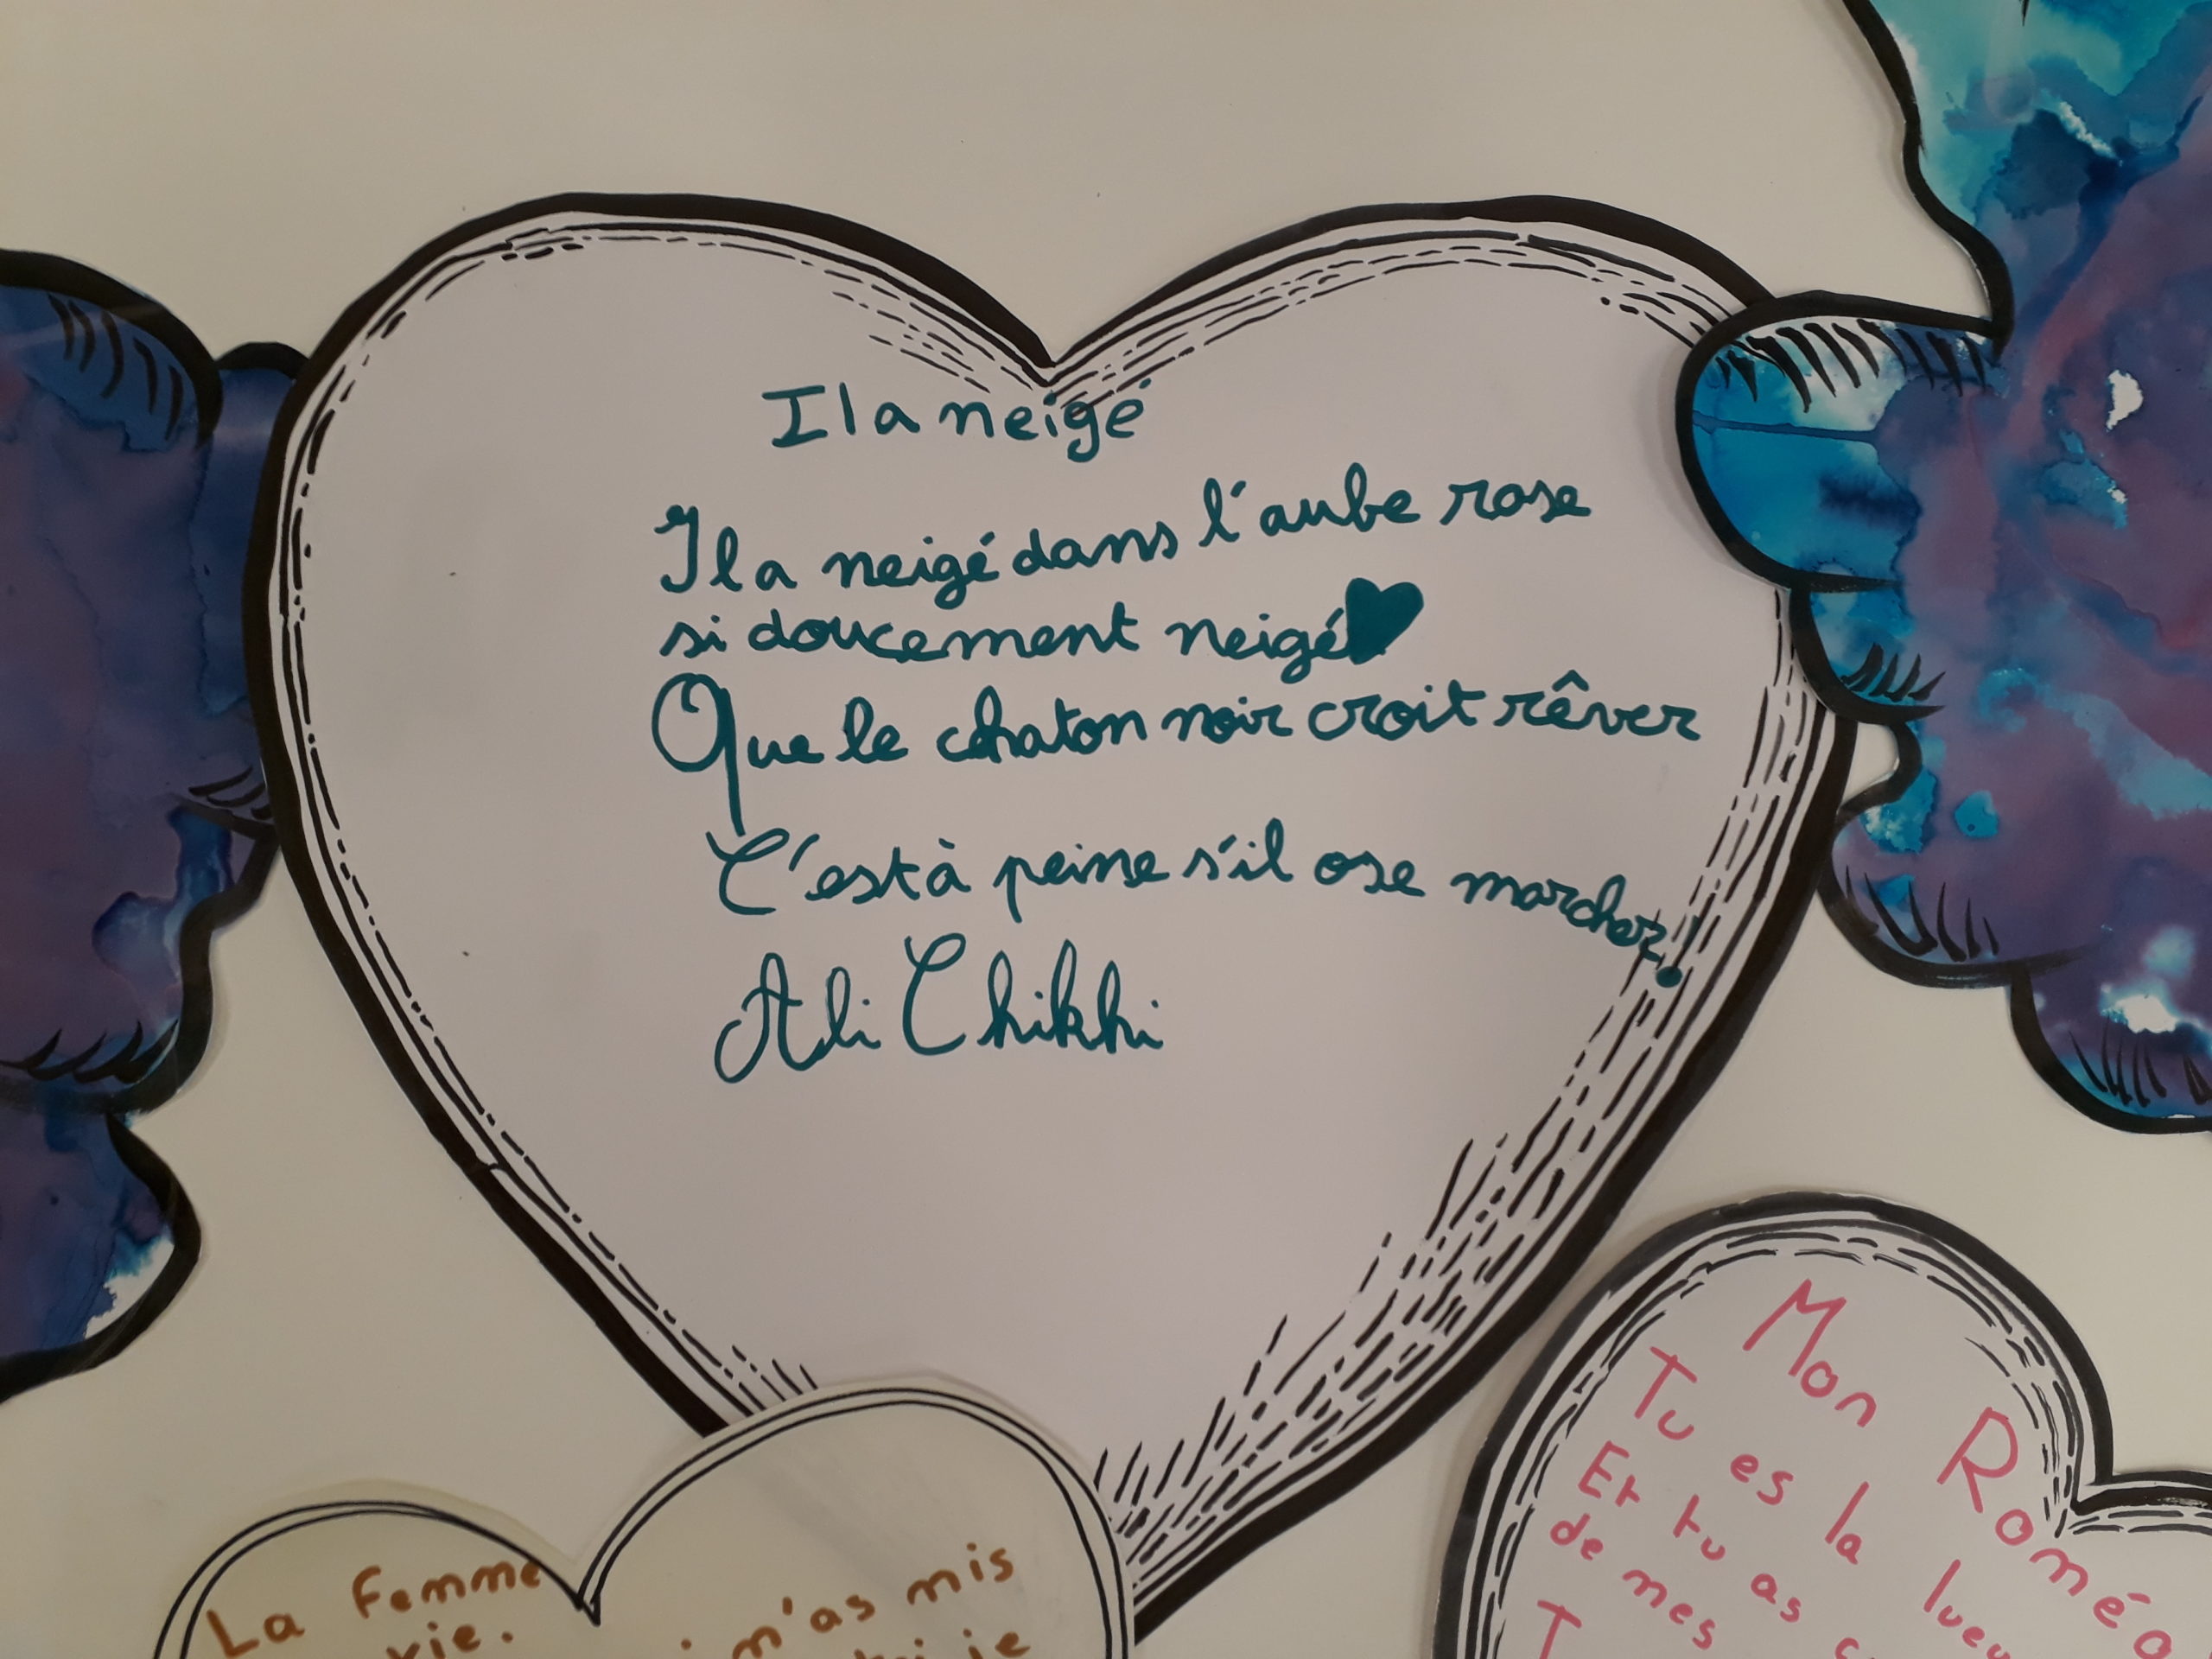 Il a neigé
Il a neigé dans l'aube rose
si doucement neigé
Que le chaton noir croit rêver
C'est à peine s'il ose marcher!
Ali Chikhi
La Femme
vie.
m'as mis
je
Mon Roméo
Tu es la
Et tu as
de mes
T